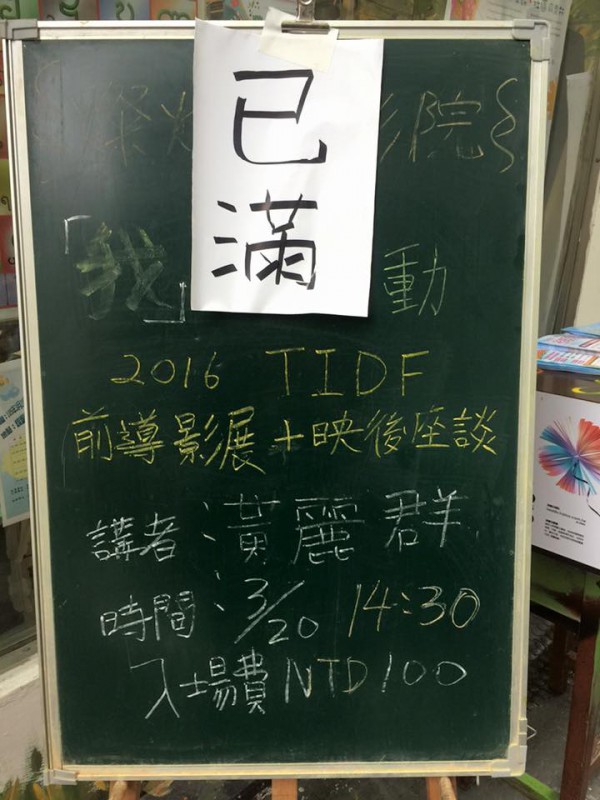 已
滿
影院
「我」 動
2016 TIDF
前導影展+映後座談
講者:黃麗群
時間:3/20 14:30
入場費NTD100